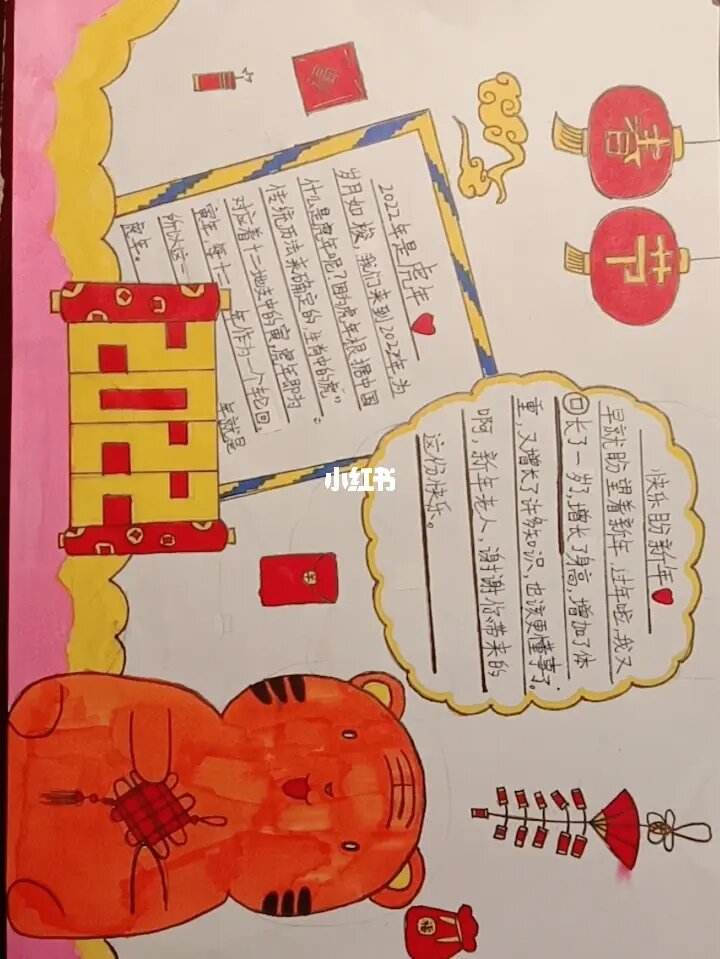 春节
2022年是虎年
岁月如梭，我们来到2022年为
什么是虎年呢？因为虎年根据中国
传统历法来确定的，生肖中的虎，
对应着十二地支中的寅，虎年即为
寅年，每十二年作为一个轮回。
所以这一年就是
虎年。
快乐的新年
早就盼望着新年，过年啦，我又
长了一岁，增长了身高，增加了体
重，又增长了许多知识，也该更懂事了。
啊，新年老人，谢谢你带来的
这份快乐。
2022
福
福
小红书